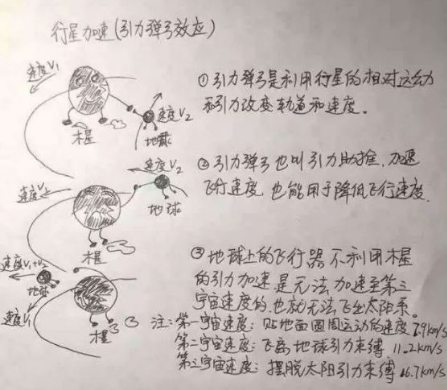 行星加速(引力弹弓效应)
速度V1
木星
速度V2
地球
①引力弹弓是利用行星的相对运动
和引力改变轨道和速度。
速度V2
速度V1
木星
地球
②引力弹弓也叫引力助推,加速
飞行速度,也能用于降低飞行速度。
速度V1+V2
地球
速度V1
木星
③地球上的飞行器不利用木星
的引力加速是无法加速至第三
宇宙速度的,也就无法飞出太阳系。
注:第一宇宙速度:贴地面圆周运动的速度 7.9km/s
第二宇宙速度:飞离地球引力束缚 11.2km/s
第三宇宙速度:摆脱太阳引力束缚 16.7km/s